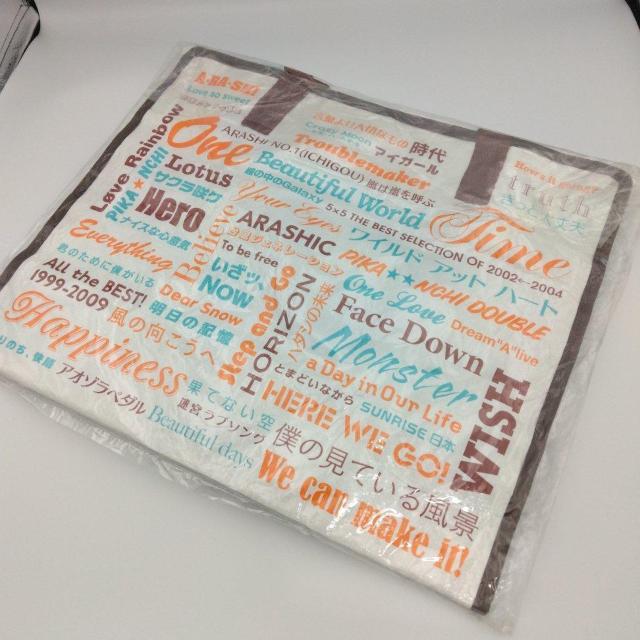 A・RA・SHI
Love so sweet
Crazy Moon
時代
Troublemaker
マイガール
truth
Love Rainbow
One
ARASHI NO.1(ICHIGOU) 嵐は嵐を呼ぶ
Beautiful World
Time
Lotus
Galaxy
5×5 THE BEST SELECTION OF 2002←2004
サクラ咲ケ
Hero
Your Eyes
ARASHIC
ワイルド アット ハート
PIKA★★NCHI DOUBLE
Everything
Believe
To be free
いざッ、
NOW
One Love
Face Down
Dream"A"live
君のために僕がいる
ALL the BEST!
1999-2009
Dear Snow
明日の記憶
Re(mark)able
HORIZON
Monster
Happiness
風の向こうへ
とまどいながら
a Day in Our Life
WISH
アオゾラペダル
果てない空
HERE WE GO!
SUNRISE日本
Beautiful days
迷宮ラブソング
僕の見ている風景
We can make it!